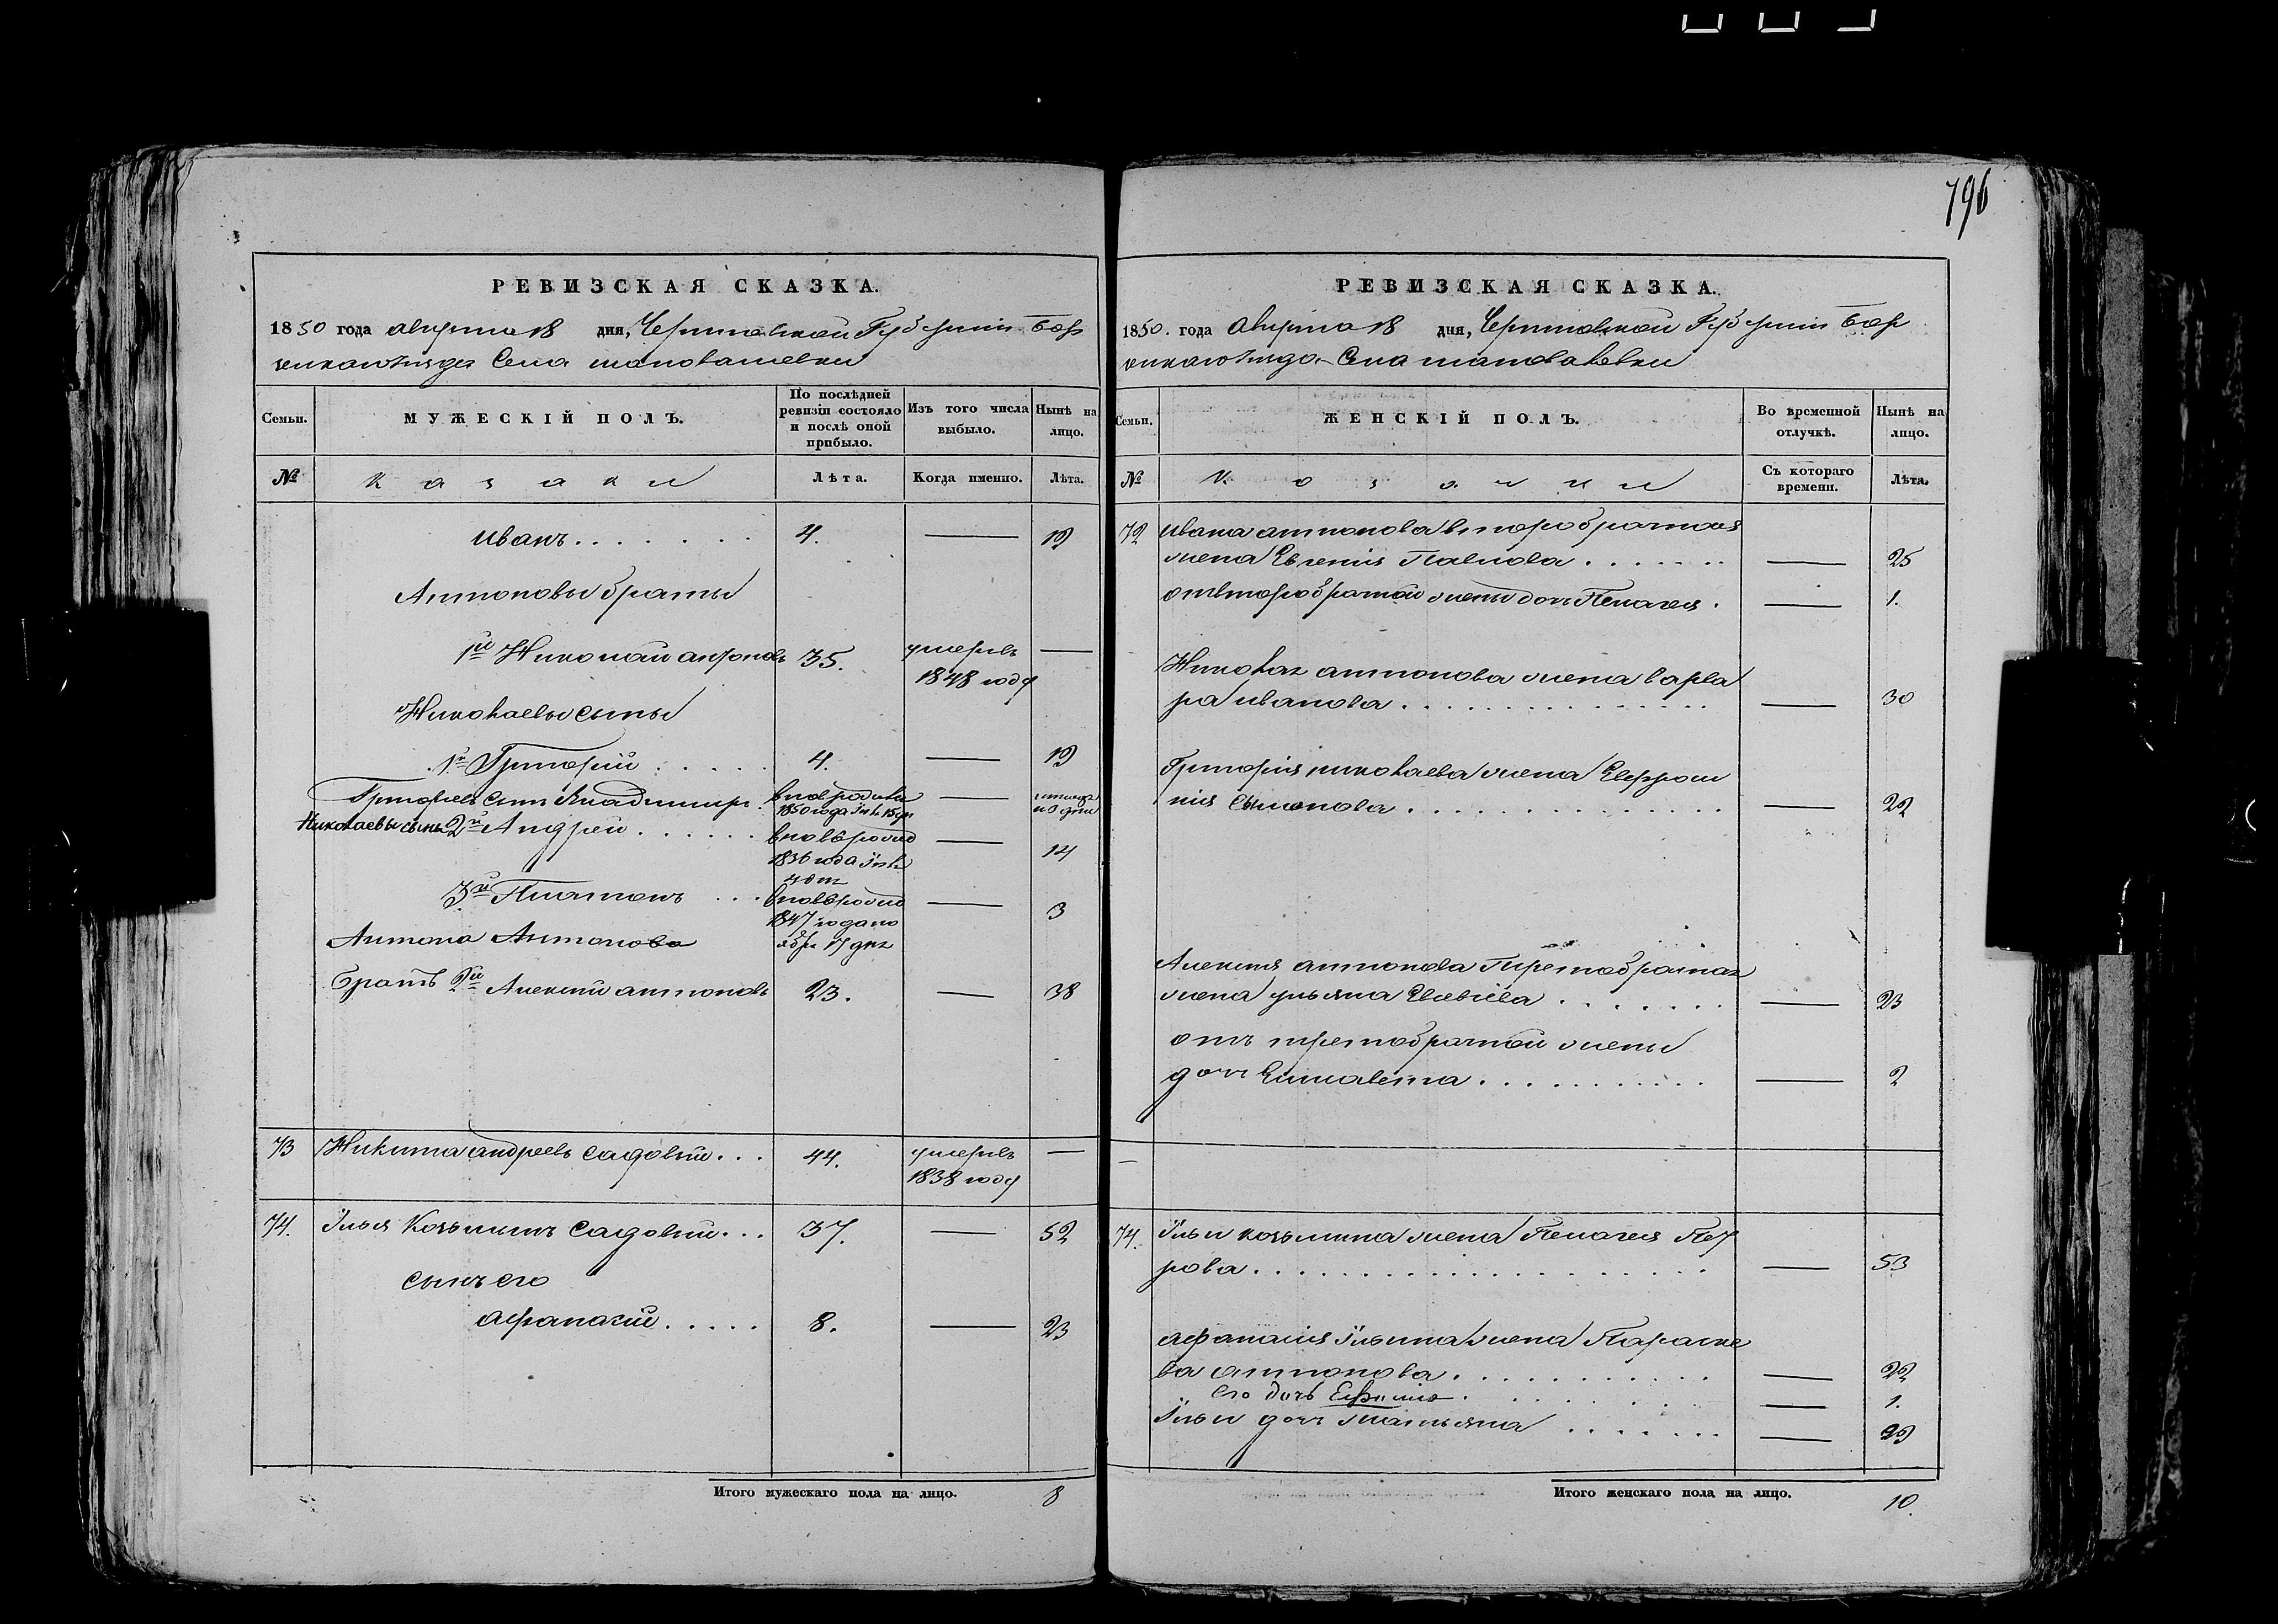 796
РЕВИЗСКАЯ СКАЗКА.
1850 года августа 18 дня, Черниговской Губернии Бор
зенского уезда Села
Семьи. МУЖЕСКІЙ ПОЛЪ. По послѣдней ревизіи состояло и послѣ оной прибыло. Изъ того числа выбыло. Нынѣ на лицо.
№ казаки Лѣта. Когда именно. Лѣта.
Иванъ 4. — 19
Антоновы браты
1й Николай антоновъ 35. умеръ 1848 году —
Николаевы сыны
1й Григорій 4. — 19
Григорьевъ сынъ Владимиръ. вновь родился 1850 года —
Николаевы сыны 2й Андрей вновь родился 1836 года — 14
3й Платонъ вновь родился 1847 года ноября 17 дня — 3
Антона Антонова
братъ 2й Алексѣй антоновъ 23. — 38
73 Никита андреевъ садовый 44. умеръ 1838 году —
74. Ілья Козьминъ садовый 37. — 52
сынъ его
афанасій 8. — 23
Итого мужескаго пола на лицо. 8
РЕВИЗСКАЯ СКАЗКА.
1850. года августа 18 дня, Черниговской Губернии Бор
зенского уезда Села
Семьи. ЖЕНСКІЙ ПОЛЪ. Во временной отлучкѣ. Нынѣ на лицо.
№ козачки Съ котораго времени. Лѣта.
72 ивана антонова второбрачная
жена Евгенія Павлова — 25
отъ второбрачной жены дочь Пелагея — 1.
Николая антонова жена варва
ра иванова — 30
Григорія николаева жена Евфроси
нія — 22
Алексѣя антонова Третобрачная
жена ульяна — 23
отъ третобрачной жены
дочь Елисавета — 2
74. Ільи козьмина жена Пелагея Пет
рова — 53
афанасія Ільина жена Параске
ва антонова — 22
его дочь Ефимія — 1.
Ільи дочь татьяна —
Итого женскаго пола на лицо. 10.